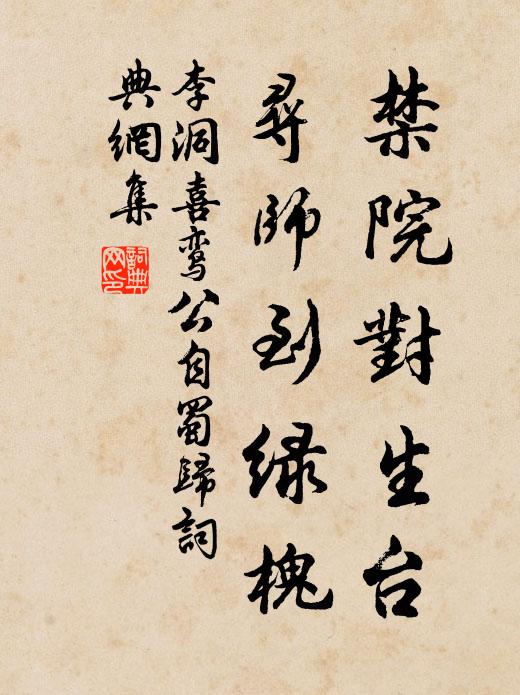 禁院對生台
尋師到緑槐
李洞喜鸾公自蜀歸詞
典網集
詞典
网印